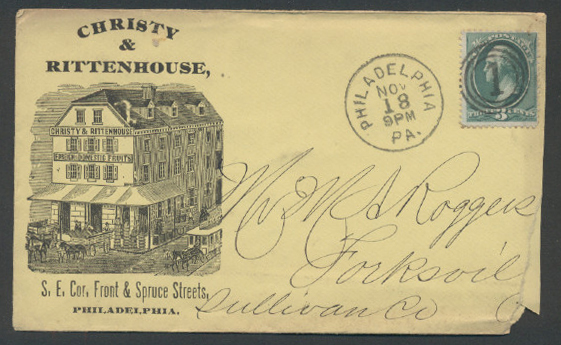 CHRISTY
&
RITTENHOUSE,
CHRISTY & RITTENHOUSE
FOREIGN & DOMESTIC FRUITS
S. E. Cor. Front & Spruce Streets,
PHILADELPHIA.
PHILADELPHIA
NOV
18
9PM
PA.
U.S. POSTAGE
1
THREE 3 CENTS
Mr M A Roggers
Forksvil
Sullivan Co